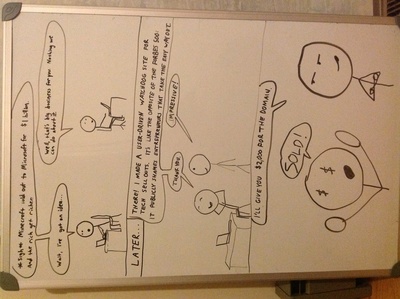 *Sigh* Minecraft sold out to Microsoft for $1 billion.
And the rich get richer.
Well, that's big business for you. Nothing we
can do about it.
Wait, I've got an idea...
LATER...
THERE! I MADE A USER-DRIVEN WATCHDOG SITE FOR
TECH SELL OUTS. IT'S LIKE THE OPPOSITE OF THE FORBES 500:
IT PUBLICLY SHAMES ENTREPRENEURS THAT TAKE THE EASY WAY OUT.
THANK YOU
IMPRESSIVE!
I'LL GIVE YOU $2,000 FOR THE DOMAIN
SOLD!
$ $